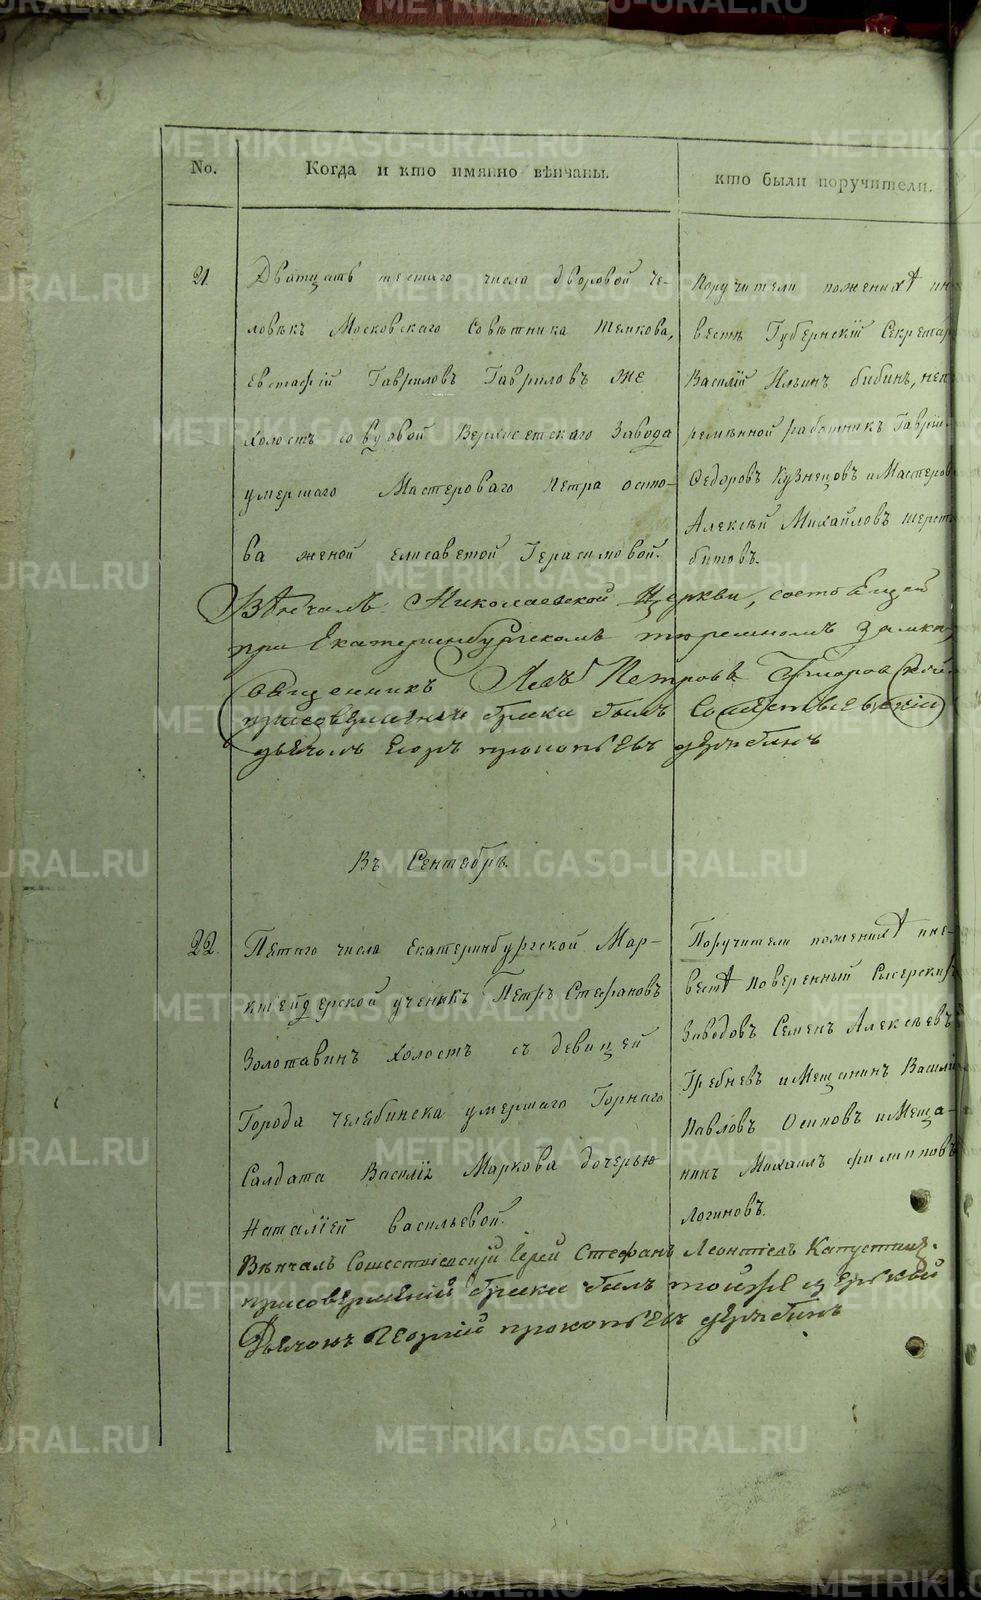 No.
Когда и кто имянно вѣнчаны.
кто были поручители.
21.
Дватцать шестаго числа дворовой че-
ловѣкъ Московскаго Совѣтника
Евстафій Гавриловъ Гавриловъ же
холостъ со вдовой Верхисетскаго Завода
умершаго Мастероваго Петра Осипо-
ва женой Елисаветой Герасимовой.
Поручители по женихѣ и не-
вестѣ Губернскій Секретарь
Василій Ильинъ бибинъ, неп-
ремѣнной работникъ Гаврил
Федоровъ Кузнецовъ и Мастеров
Алексѣй Михайловъ шерсто-
битовъ.
Вѣнчалъ Николаевской Церкви, состоящей
при Екатеринбургскомъ тюремномъ замкѣ,
священникъ Левъ Петровъ
при совершеніи брака былъ Сошественскій
дьяконъ Егоръ прокопьевъ дерябинъ
Въ Сентябрѣ.
22.
Пятаго числа Екатеринбургской Мар-
кшейдерской ученикъ Петръ Стефановъ
Золотавинъ холостъ съ девицей
Города Челябинска умершаго Горнаго
Салдата Василія Маркова дочерью
Наталіей васильевой.
Поручители по женихѣ и не-
вестѣ Поверенный Сысерскихъ
Заводовъ Семенъ Алексѣевъ
Гребневъ и Мещанинъ Василій
Павловъ Осиповъ и Меща-
нинъ Михаилъ филиповъ
Логиновъ.
Вѣнчалъ Сошественскій Іерей Стефанъ Леонтіевъ Капустинъ.
при совершеніи брака былъ тойже церькви
Дьяконъ Георгій прокопьевъ дерябинъ
METRIKI.GASO-URAL.RU